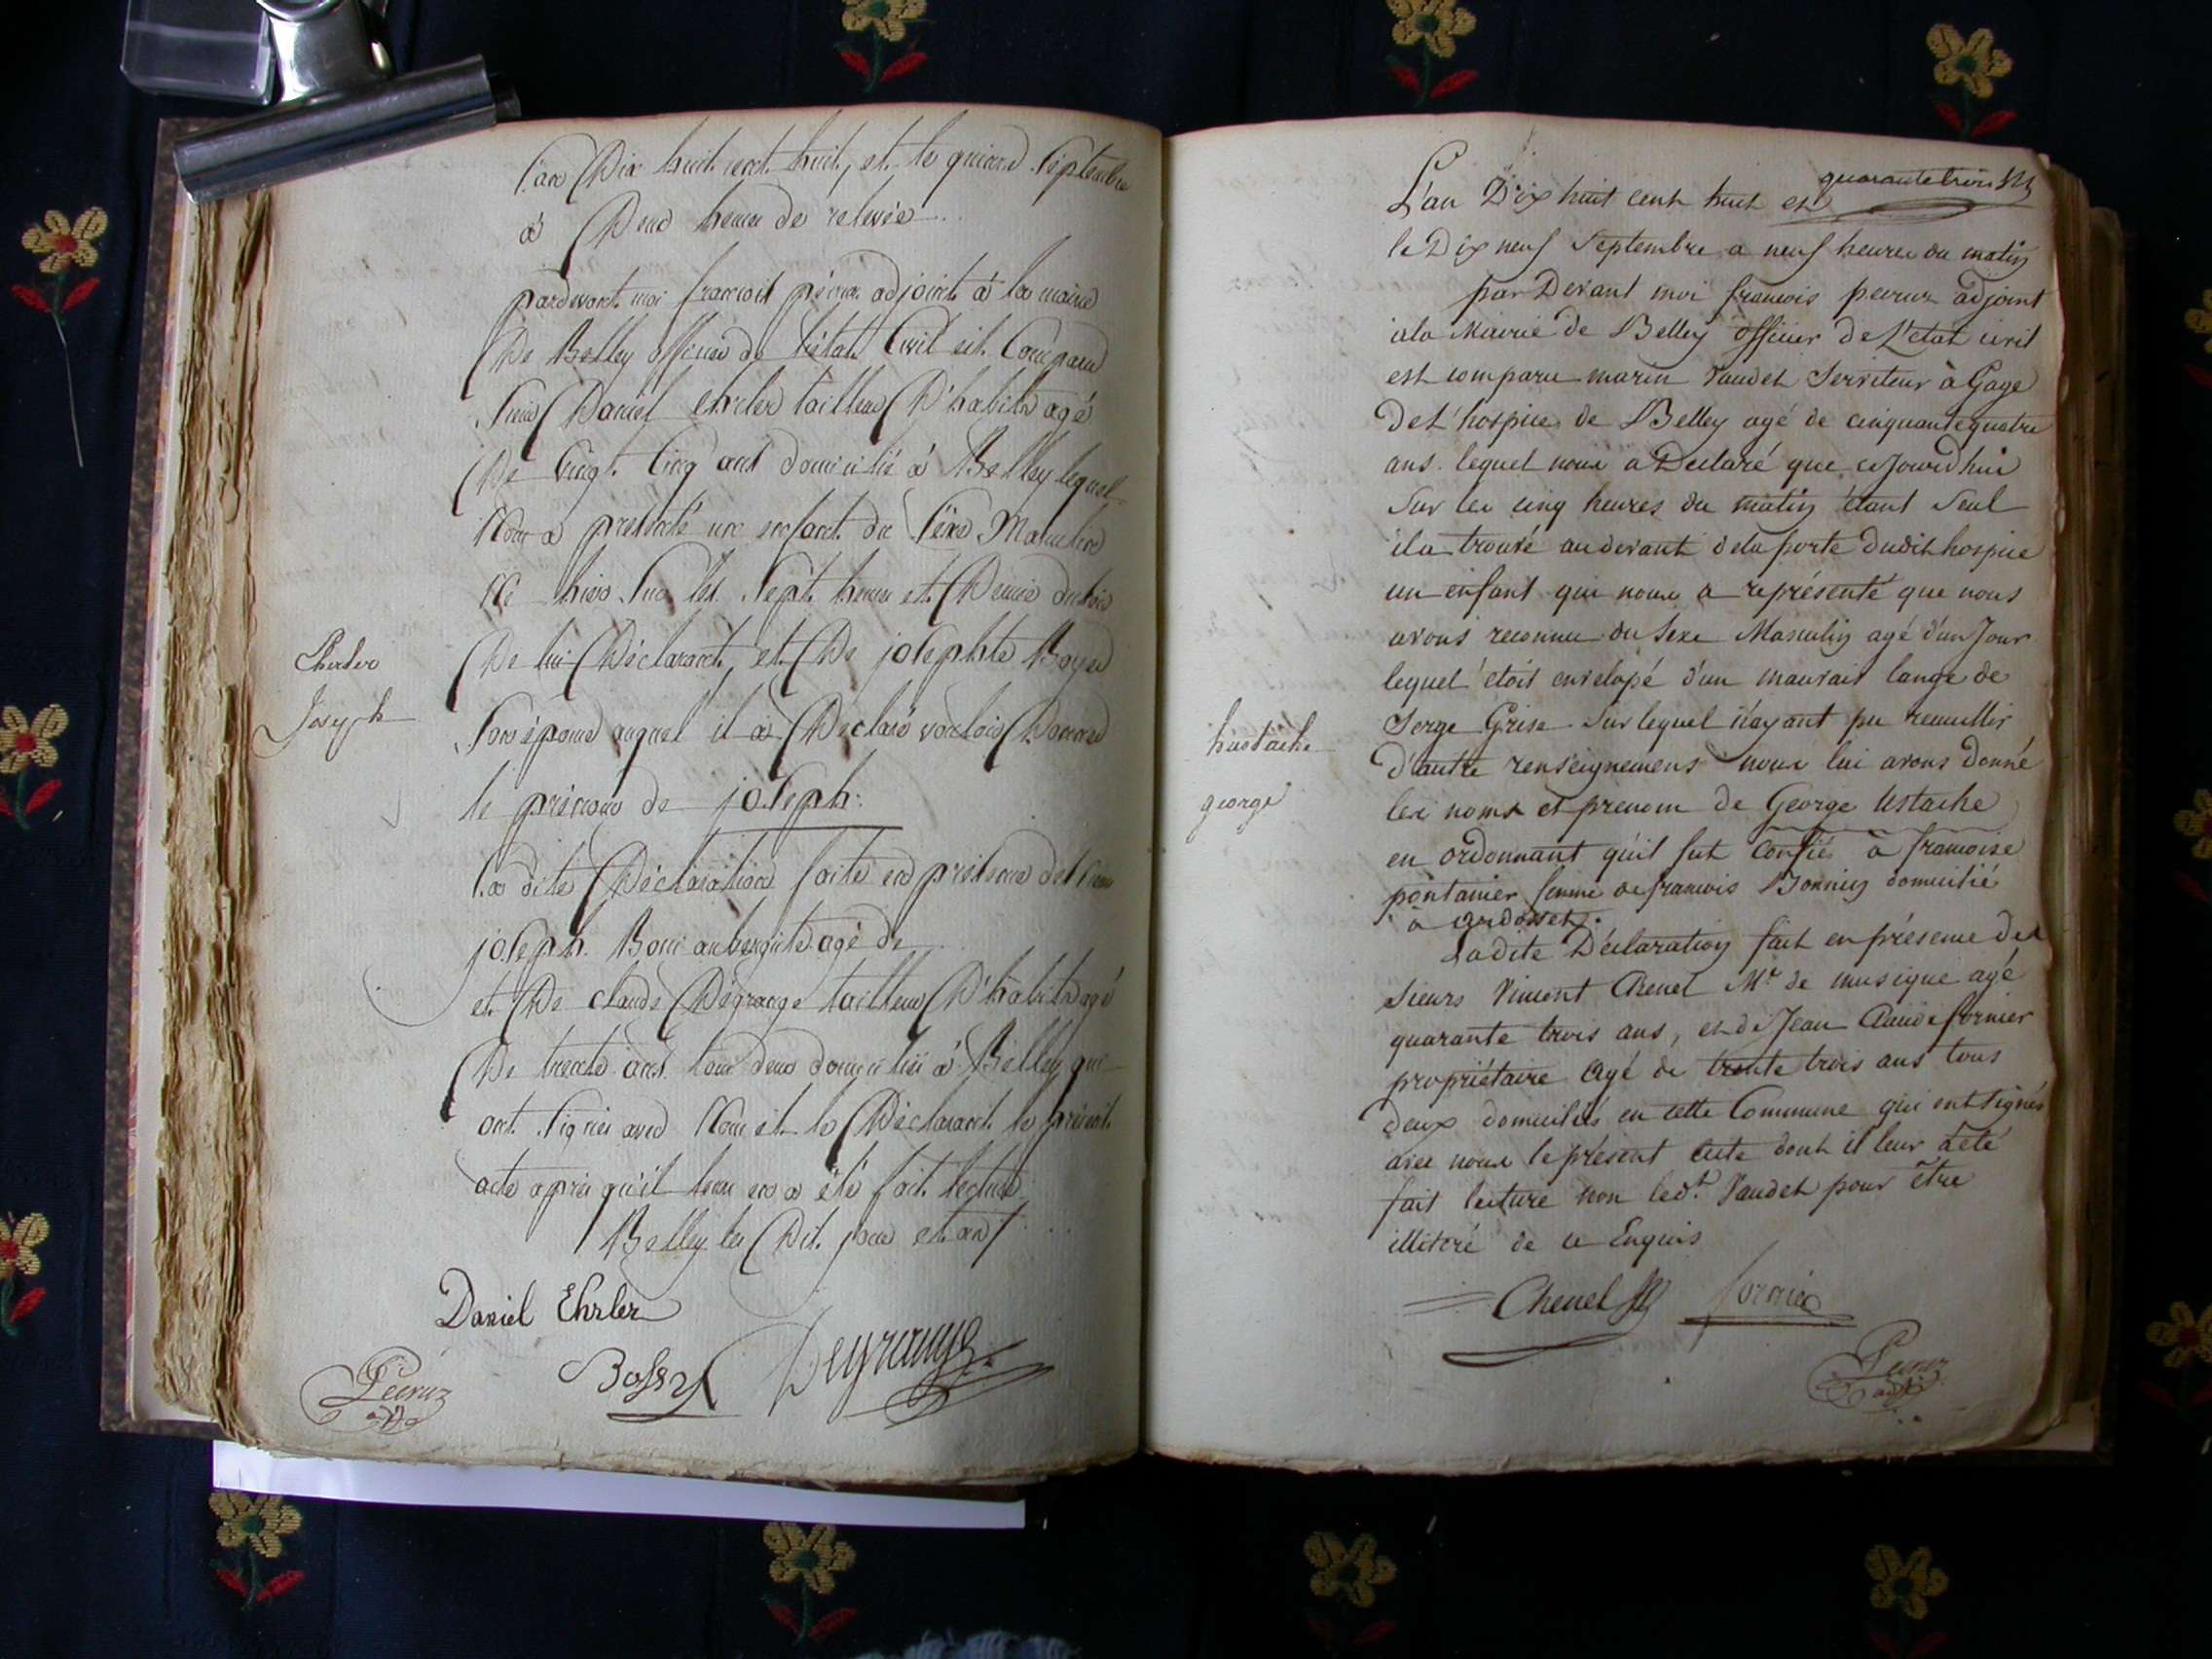 L'an Dix huit cent huit, et le quinze Septembre
à Deux heures de relevée
pardevant moi françois péeruz adjoint à la mairie
De Belley officier de l'état Civil est Comparu
Sieur Daniel ehrler tailleur D'habits agé
De Vingt Cinq ans domicilié à Belley lequel
Nous a présenté un enfant du Sexe Masculin
Né hier Sur les Sept heures et Demie du soir
De lui Déclarant, et De josephte Boyer
Son épouse auquel il a Déclaré vouloir Donner
le prénom de joseph.
Ehrler
Joseph
La dite Déclaration faite en présence des Sieurs
joseph aubergiste agé de
et De claude Dégrange tailleur D'habits agé
De trente ans tous deux domiciliés à Belley qui
ont Signés avec Nous et le Déclarant le présent
acte après qu'il leur en a été fait lecture
Belley les Dit jour et an
Daniel Ehrler
Péeruz
adjt
Degrange
quarante trois
L'an Dix huit cent huit et
le Dix neuf Septembre a neuf heures du matin
par Devant moi francois peeruz adjoint
a la Mairie de Belley officier de L'etat civil
est comparu marin Vaudet Serviteur à Gage
De L'hospice de Belley agé de cinquante quatre
ans. lequel nous a Declaré que ce Jourd'hui
Sur les cinq heures du matin étant Seul
il a trouvé au devant de la porte dudit hospice
un enfant qui nous a représenté que nous
avons reconnu du Sexe Masculin agé d'un Jour
lequel étoit envelopé d'un mauvais lange de
Serge Grise Sur lequel n'ayant pu receuillir
d'autre renseignemens nous lui avons donné
les noms et prenom de George Ustache
hustache
george
en ordonnant qu'il fut confié à francoise
pontanier femme de francois Bonnin domicilié
à
Ladite Déclaration fait en présence des
sieurs Vincent Chenel Mr de musique agé
quarante trois ans, et de Jean Claude fornier
propriétaire agé de trente trois ans tous
deux domiciliés en cette Commune qui ont signés
avec nous le présent acte dont il leur a été
fait lecture non ledt Vaudet pour être
illiteré de ce Enquis
Chenel fornier
Péeruz
adjt